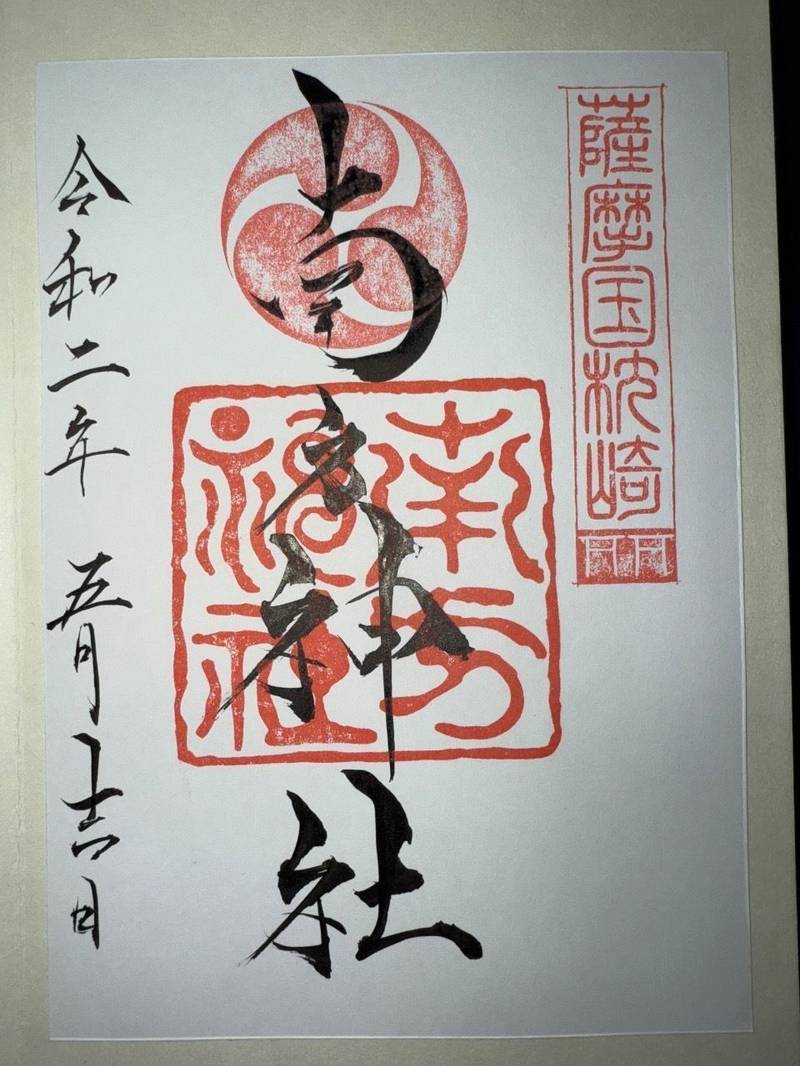 薩摩国枕崎
南方神社
南方神社
令和二年 五月十六日